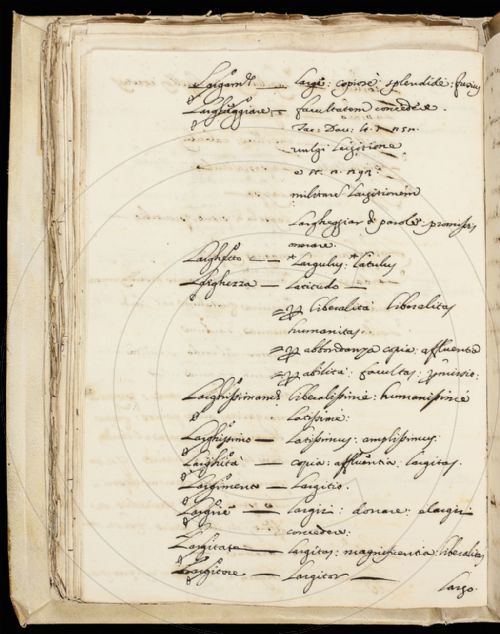 Largam.te — large: copiose splendide: fusius
Largheggiare — facultatem concedere.
Tac: Dav:
vulgi largitione
militarẽ largitionem
Largheggiar di parole: promissis
morare.
Larghetto — *Largulus: *Latulus
Larghezza — Latitudo —
= p liberalità liberalitas
humanitas.
= p abbondanza copia: affluentia
= p abilità: facultas:
Larghissimam.te liberalissime: humanissime
latissime:
Larghissimo — latissimus: amplissimus:
Larghità — copia: affluentia: largitas.
Largimento — largitio:
Largire — largiri: donare: elargiri
concedere:
Largitate — largitas: magnificentia: liberalitas
Largitore — Largitor —
Largo.